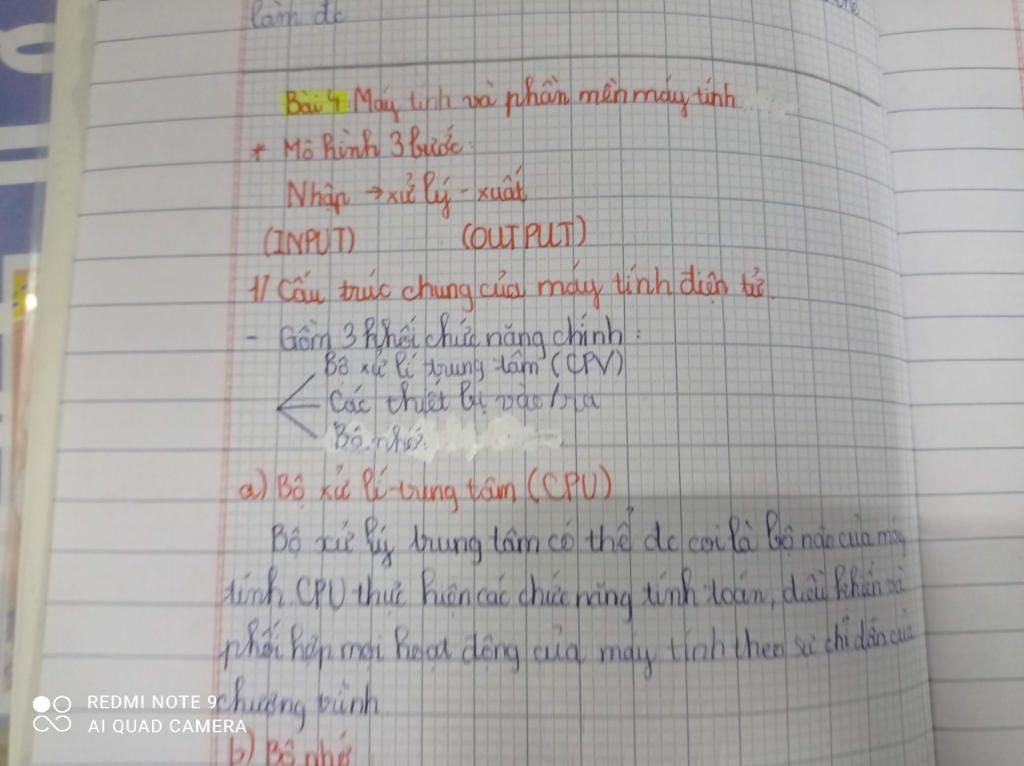 làm đc
Bài 4 Máy tính và phần mền máy tính
* Mô hình 3 bước
Nhập → xử lý - xuất
(INPUT) (OUTPUT)
1/ Cấu trúc chung của máy tính điện tử
- Gồm 3 khối chức năng chính :
Bộ xử lí trung tâm (CPV)
Các thiết bị vào / ra
Bộ nhớ
a) Bộ xử lí trung tâm (CPU)
Bộ xử lý trung tâm có thể đc coi là bộ não của máy
tính. CPU thực hiện các chức năng tính toán, điều khiển và
phối hợp mọi hoạt động của máy tính theo sự chỉ dẫn của
chương trình
b) Bộ nhớ
REDMI NOTE 9
AI QUAD CAMERA